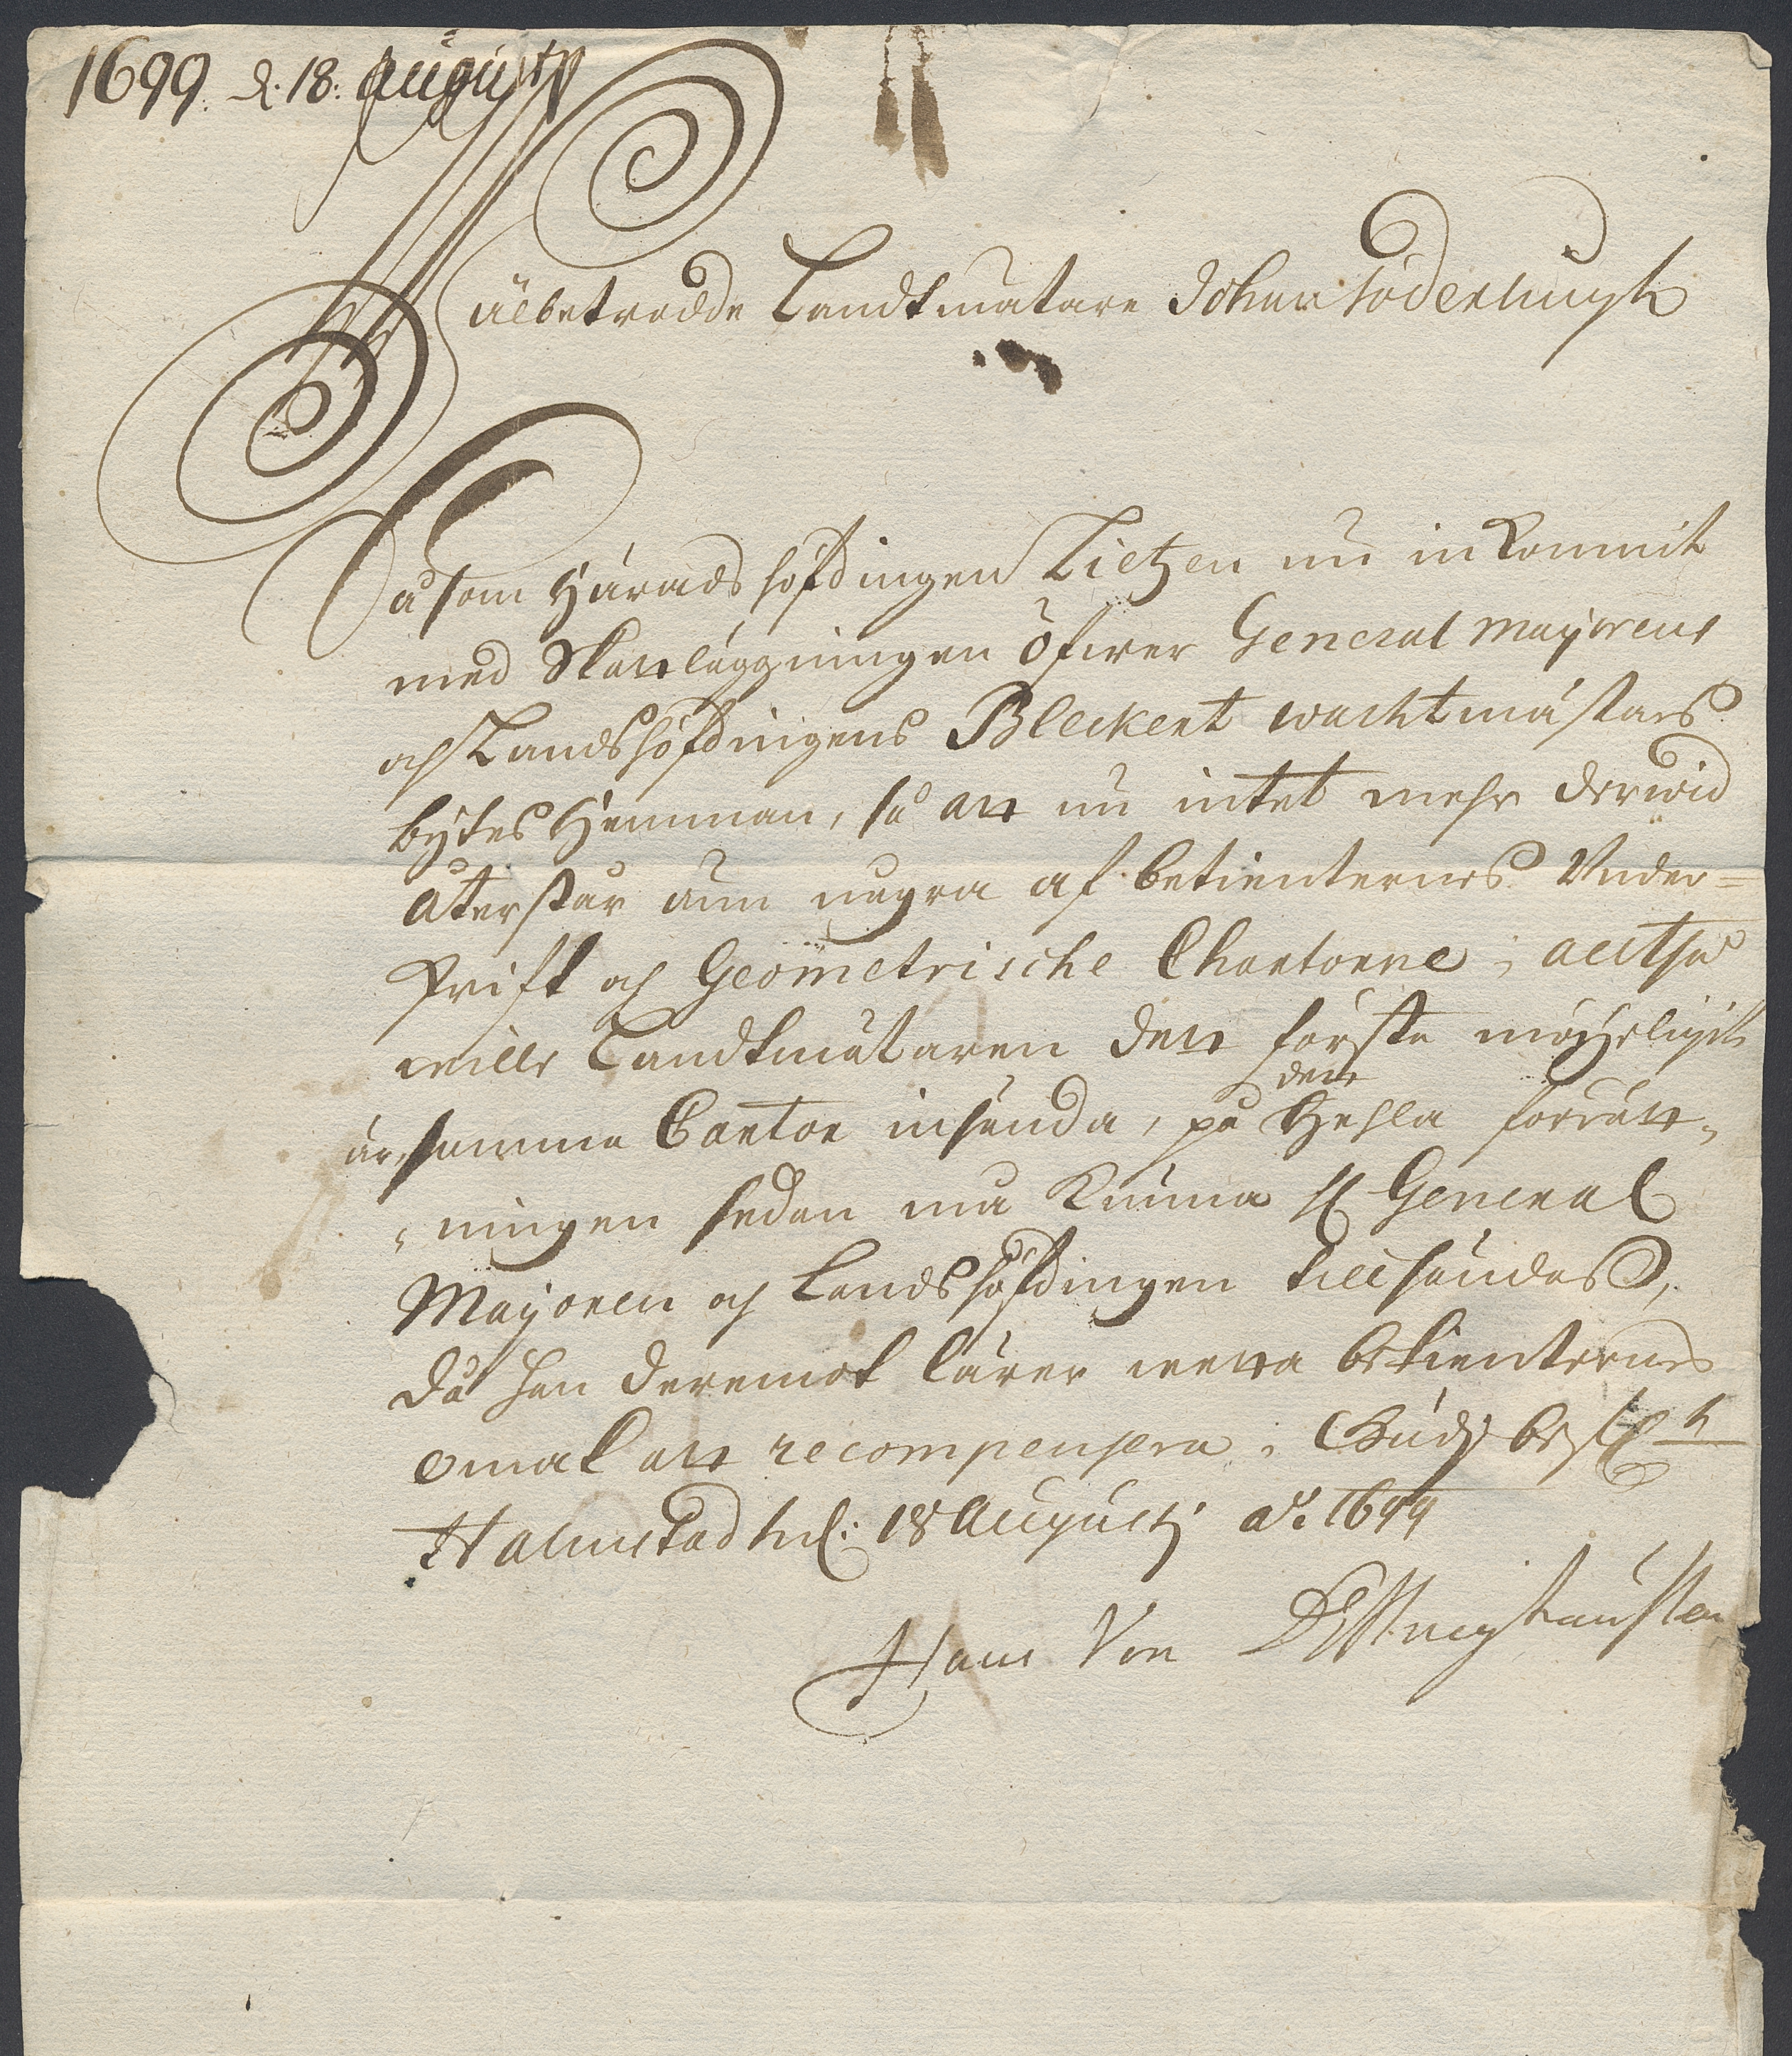 1699. d. 18. Augusty
Wälbetrodde Landtmätare Johan Söderlingh
Såsom Häradshöfdingen Tietzen nu inkommit
med Skattläggningen öfwer General Majorens
och Landshöfdingens Bleckert wachtmästars
bÿtes Hemman, så att nu intet mehr derwid
återstår ann några af betienternes Under=
skrift och Geometrische Chartorne, alltså
wille Landtmätaren dett första möÿeligit
är, samma Cartor insända, på det Hehla förrätt„
„ningen sedan må kunna H General
Majoren och Landshöfdingen till sändas,
då han deremot lärer wetta betienternes
omak att recompensera. Gudz bef
Halmstadh d: 18 Augustj ao. 1699
Hans Von